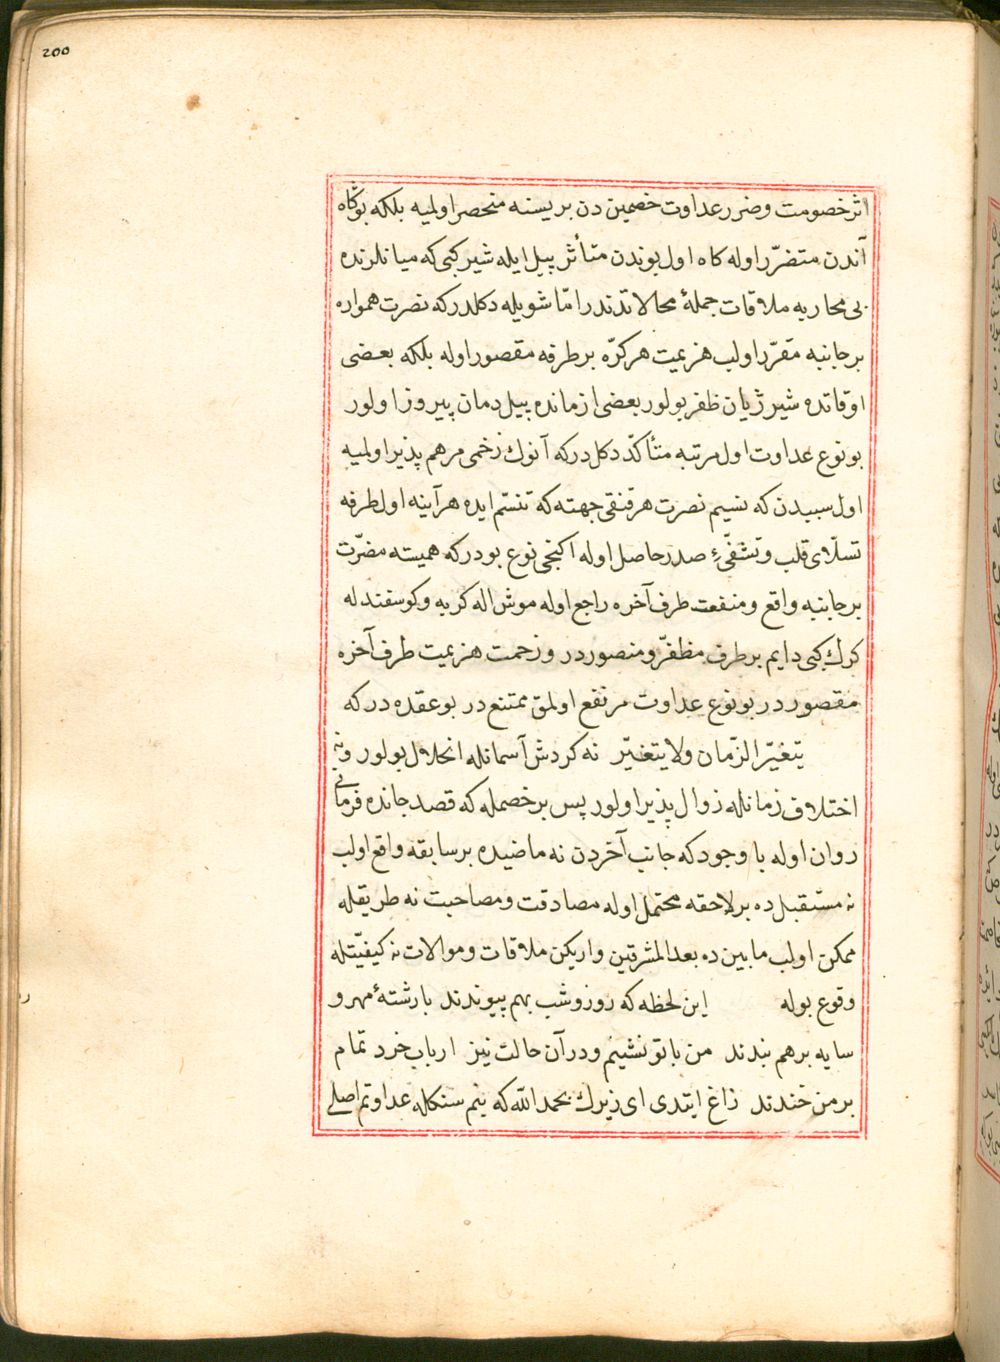 200
اثر خصومت و ضرر عداوت خصمین دن بریسنه منحصر اولمیه بلکه بو کاه
آندن متضرّر اوله کاه اول بوندن متأثر پیل ایله شیر کبی که میانلرنده
بی محاربه ملاقات جملهٔ محالاتدندر امّا شویله دکلدر که نصرت همواره
بر جانبه مقرّر اولب هزیمت هر کرّه بر طرفه مقصور اوله بلکه بعضی
اوقاتده شیر ژیان ظفر بولور بعضی ازمانده پیل دمان پیروز اولور
بو نوع عداوت اول مرتبه متأکّد دکلدر که آنوك زخمی مرهم پذیر اولمیه
اول سببدن که نسیم نصرت هر قنقی جهته که تنسّم ایده هر آینه اول طرفه
تسلّای قلب و تشفّیٔ صدر حاصل اوله ایکنجی نوع بودر که همیشه مضرّت
بر جانبه واقع و منفعت طرف آخره راجع اوله موش اله کربه و کوسفند له
کرك کبی دایم بر طرف مظفّر و منصور در و زحمت هزیمت طرف آخره
مقصور در بو نوع عداوت مرتفع اولمق ممتنع در بو عقده در که
یتغیّر الزّمان ولا یتغیّر نه کردش آسمانله انحلال بولور و نه
اختلاف زمانله زوال پذیر اولور پس بر خصمله که قصد جانده فرمانی
روان اوله با وجود که جانب آخردن نه ماضیده بر سابقه واقع اولب
نه مستقبل ده بر لاحقه محتمل اوله مصادقت و مصاحبت نه طریقله
ممکن اولب مابین ده بعد المشرقین واریکن ملاقات و موالات نه کیفیّتله
وقوع بوله این لحظه که روز و شب بهم پیوندند با رشتهٔ مهر و
سایه بر هم بندند من با تو نشینم و در آن حالت نیز ارباب خرد تمام
بر من خندند زاغ ایتدی ای زیرك بحمد الله که بنم سنکله عداوتم اصلی